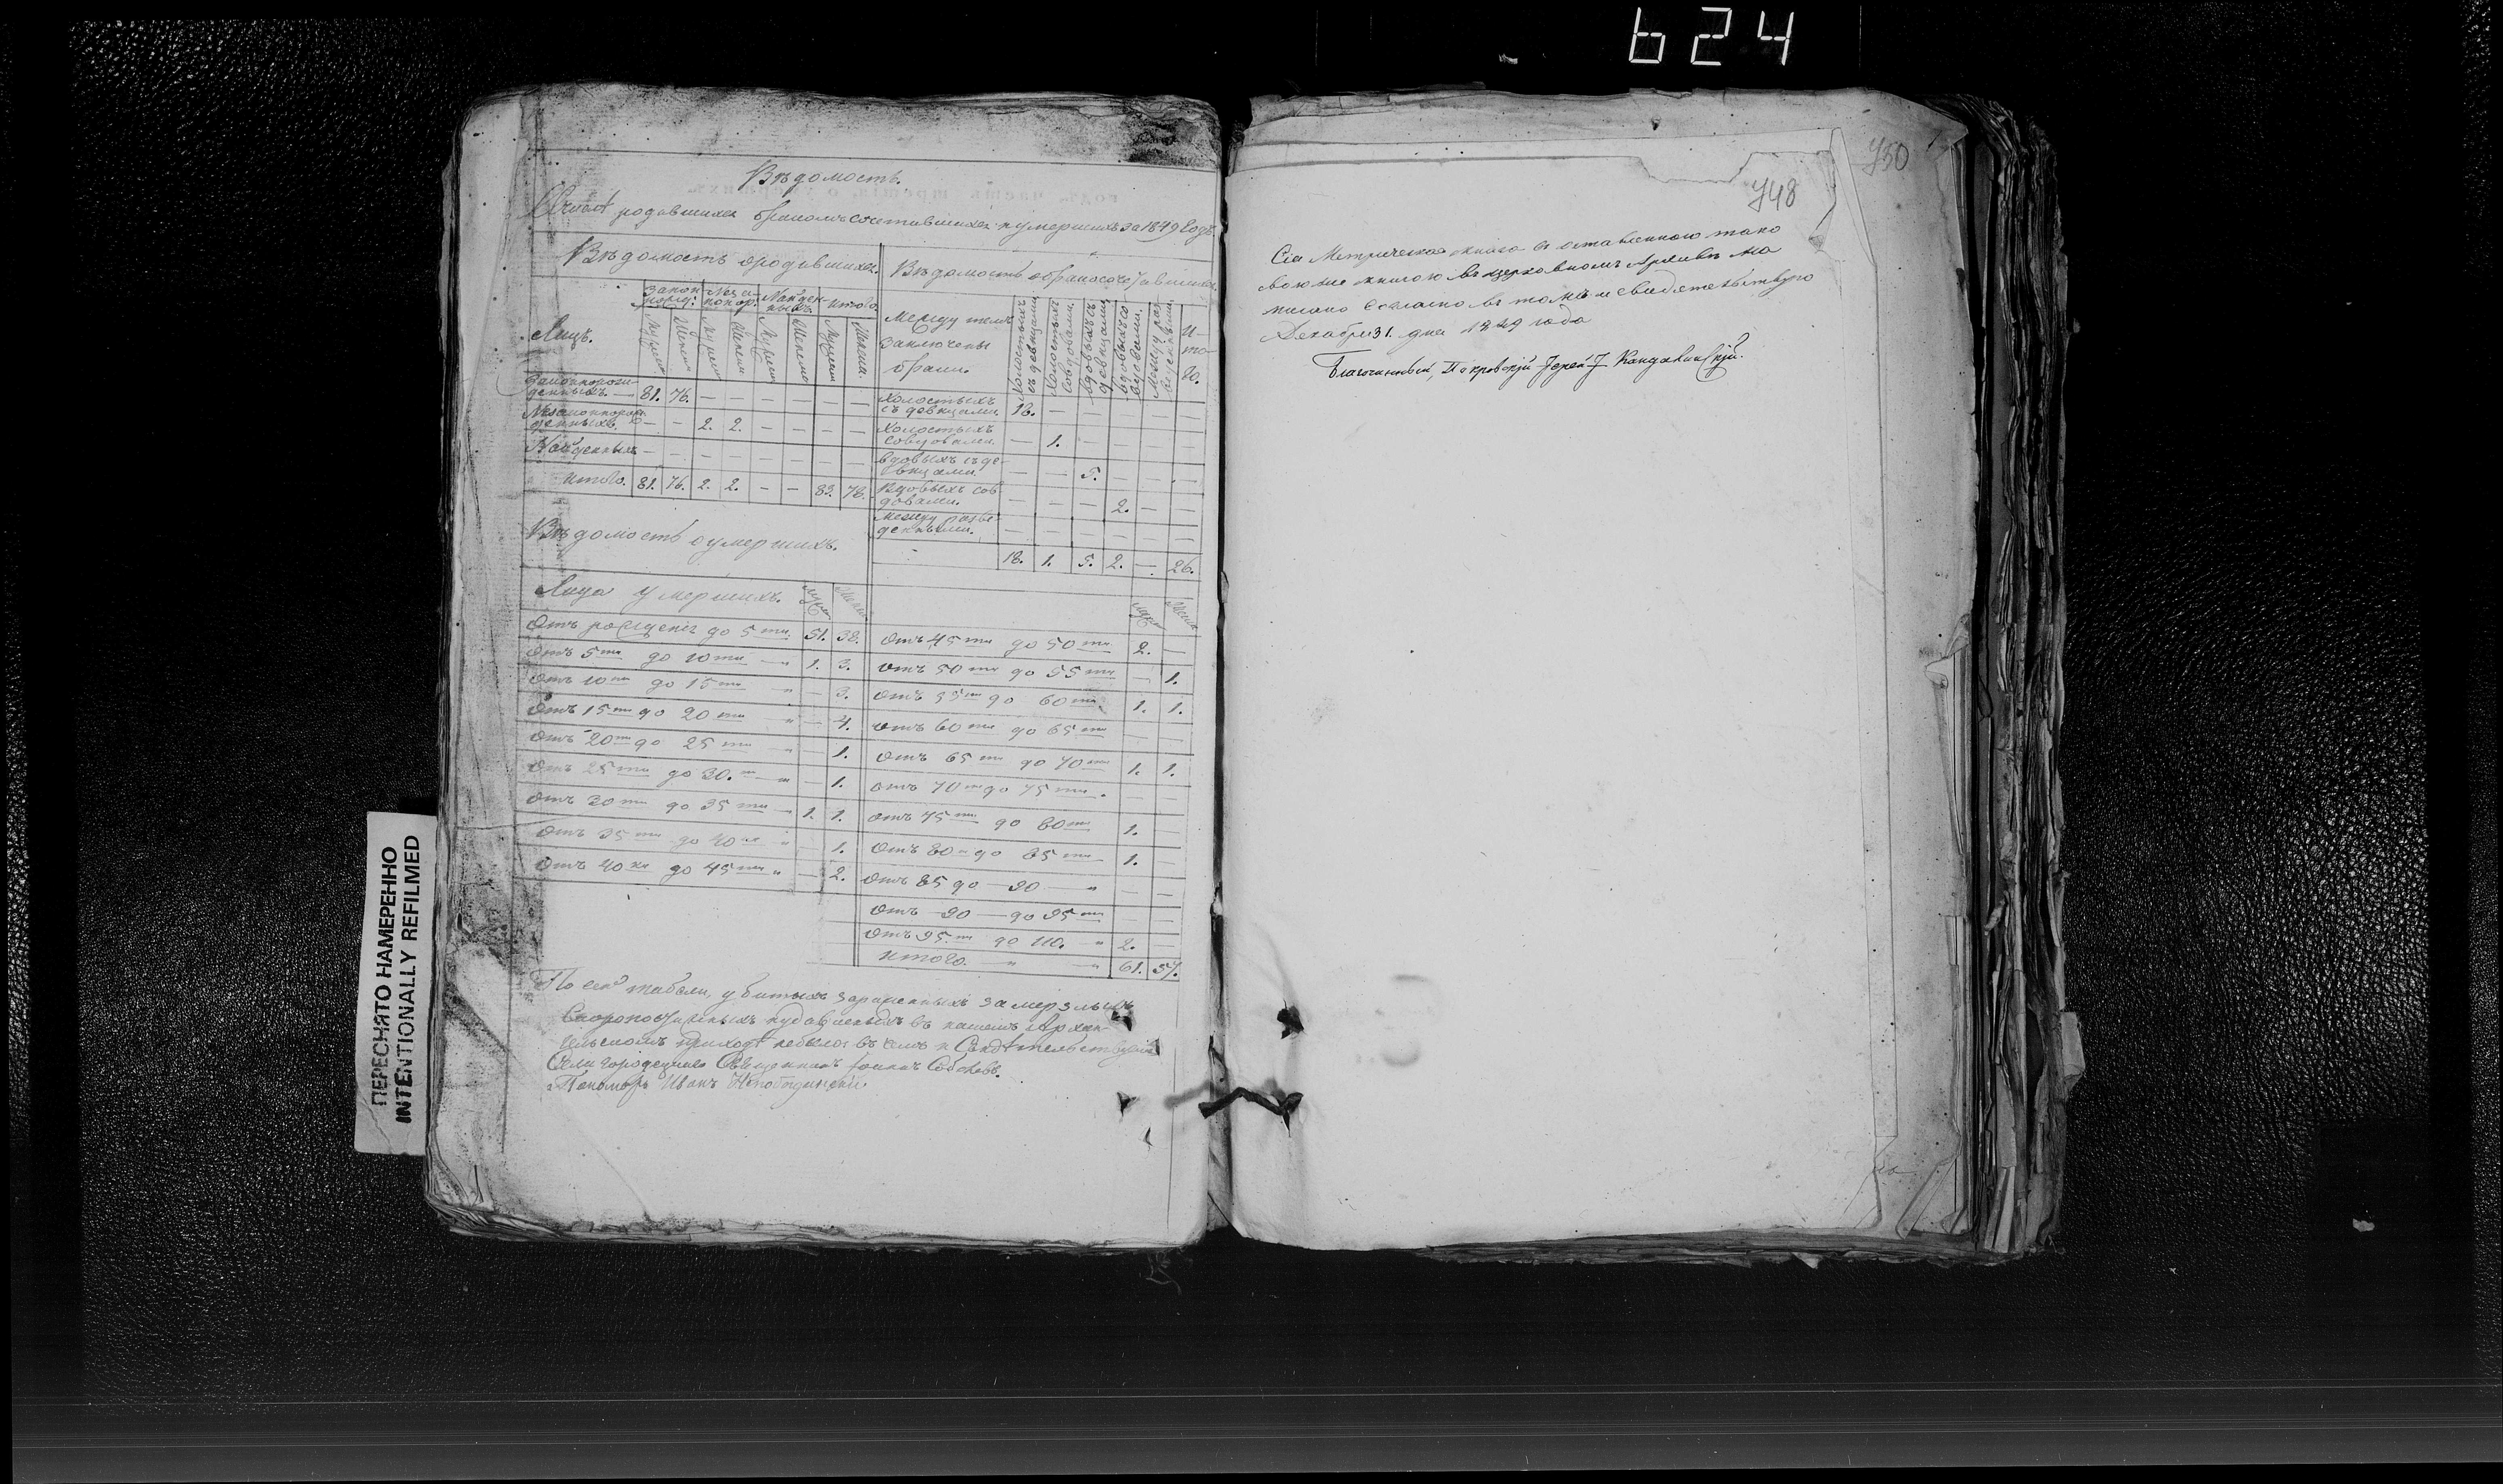 624
Вѣдомость.
родившихся бракомъ сочетавшихся и умершихъ за 1849 Годъ.
Вѣдомость о родившихся.
Лицъ.
Закон. рожд:
Незаконор:
Найденныхъ.
Итого.
Мужеск
Женск
Мужеск
Женск
Мужеск
Женска
Мужеск
Женска.
Законнорожденныхъ. — 81. 76. — — — — — —
Незаконнорожденныхъ. — — 2. 2. — — — —
Найденныхъ — — — — — — — —
Итого. 81. 76. 2. 2. — — 83. 78.
Вѣдомость о бракосочетавшихся
Между кѣмъ
заключены
браки.
Холостыхъ съ девицами
Холостыхъ со вдовами.
Вдовыхъ съ девицами
Вдовыхъ со вдовами.
Между разведенными.
Итого.
Холостыхъ съ девицами. 18. — — — — —
Холостыхъ со вдовами. — 1. — — — —
Вдовыхъ съ девицами. — — 5. — — —
Вдовыхъ со вдовами. — — — 2. — —
Между разведенными. — — — — — —
18. 1. 5. 2. — 26.
Вѣдомость о умершихъ.
Лица умершихъ.
Отъ рожденія до 5ти 51. 38.
Отъ 5ти до 10ти — 1. 3.
Отъ 10ти до 15ти — 3.
Отъ 15ти до 20ти — 4.
Отъ 20ти до 25ти — 1.
Отъ 25ти до 30.ти — 1.
Отъ 30ти до 35ти — 1. 1.
Отъ 35ти до 40ка 1.
Отъ 40ка до 45ти — 2.
Отъ 45ти до 50ти 2. —
Отъ 50ти до 55ти — 1.
Отъ 55ти до 60ти 1. 1.
Отъ 60ти до 65ти — —
Отъ 65ти до 70ти 1. 1.
Отъ 70ти до 75ти. — —
Отъ 75ти до 80ти 1. —
Отъ 80ти до 85ти 1. —
Отъ 85 до — 90 — — —
Отъ — 90 — до 95ти — —
Отъ 95.ти до 110. 2. —
Итого. 61. 57.
По сей табели, убитыхъ зараженныхъ замерзлыхъ
Скоропостижныхъ и удавленыхъ въ нашемъ
приходѣ небыло въ чемъ и Свидѣтельствуемъ
Села Городецкаго Священникъ Іоаннъ
Пономарь Иванъ
750
748
Сія Метрическая книга съ оставленною тако
вою же книгою въ церковномъ Архивѣ на
писана согласно въ томъ и свидѣтельствую
Декабря 31. дня 1849 года
Благочинный, Покровскій Іерей І Кандалинскій.
ПЕРЕСНЯТО НАМЕРЕННО
INTENTIONALLY REFILMED